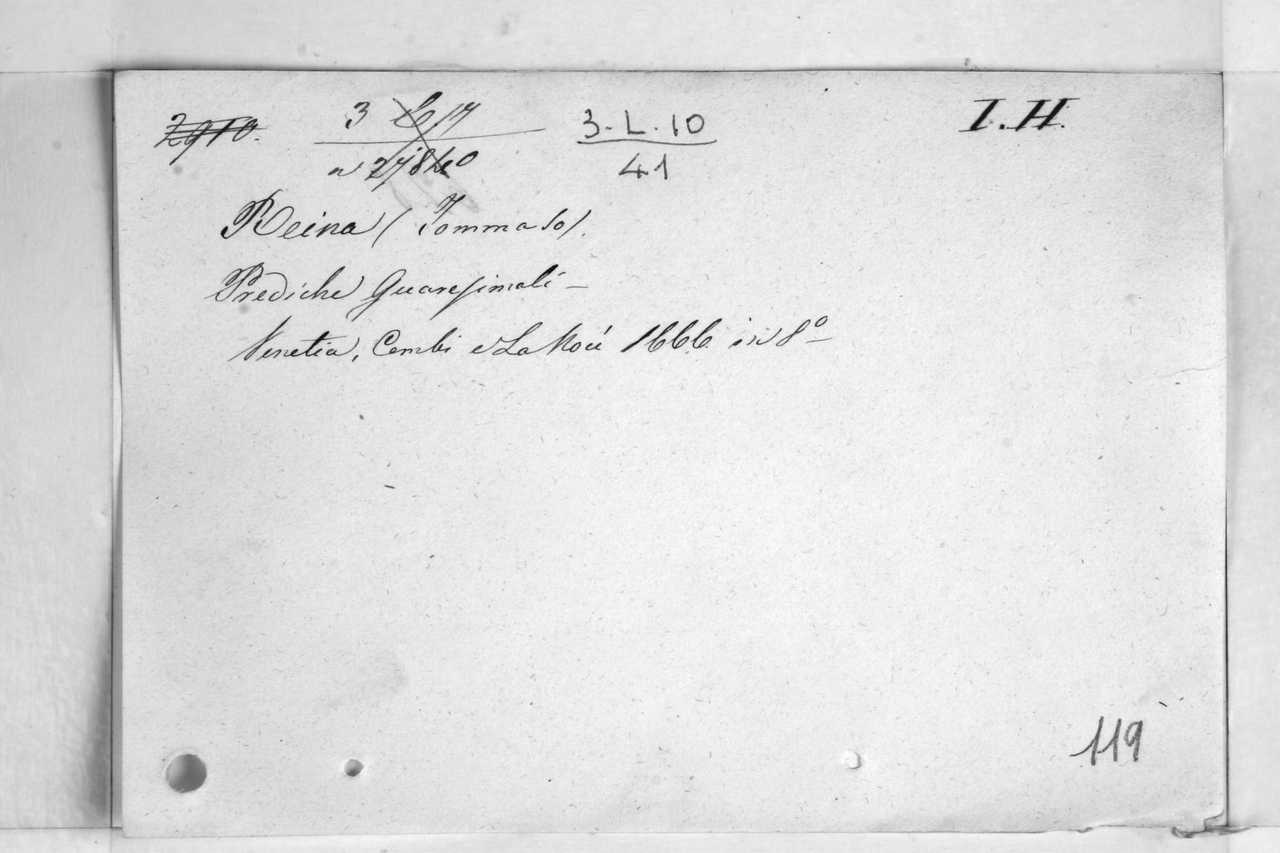 2910. 3 L 17 3.L.10 I.H.
n 27840 41
Reina (Tommaso).
Prediche Quaresimali –
Venetia, Combi e La Noù 1666 in 8º –
119